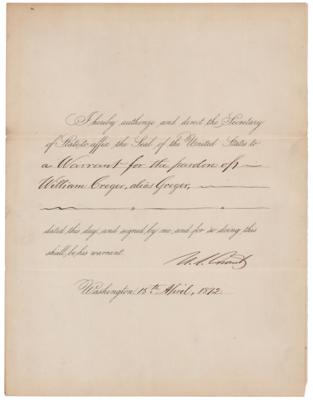 I hereby authorize and direct the Secretary
of State to affix the Seal of the United States to
a Warrant for the pardon of
William Creger, alias Greger,
dated this day, and signed by me, and for so doing this
shall be his warrant.
U.S. Grant
Washington, 15th April, 1872.